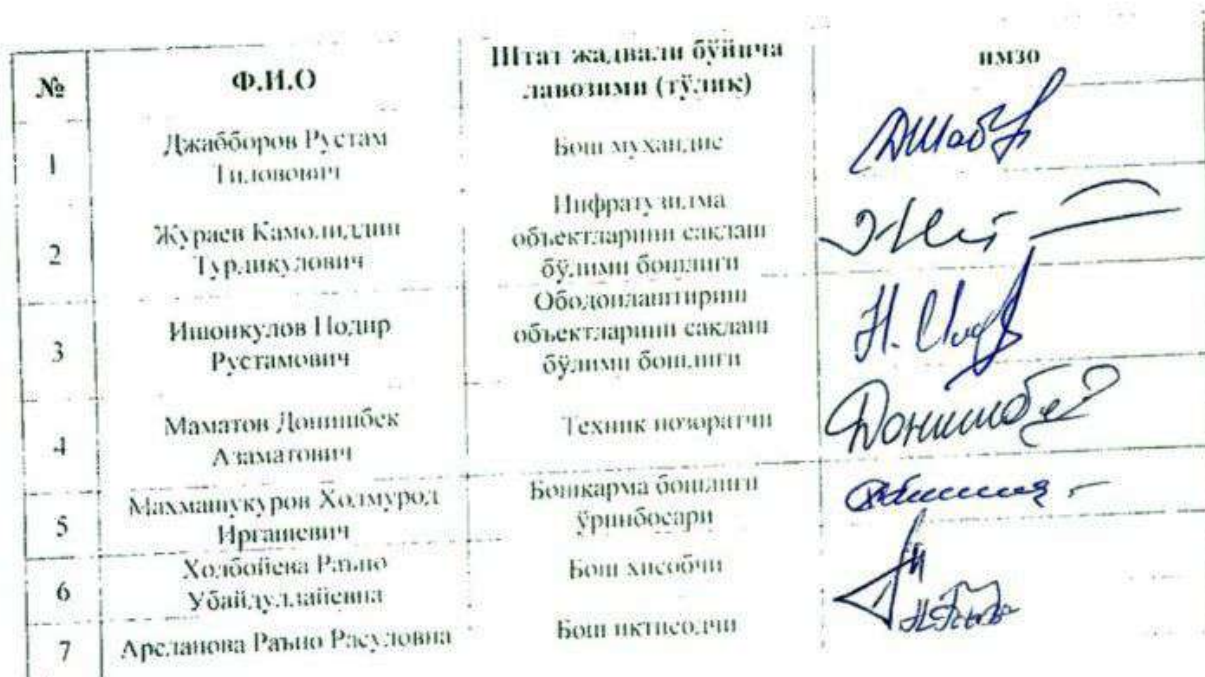 №
Ф.И.О
Штат жадвали бўйича
лавозими (тўлик)
имзо
1
Джабборов Рустам
Тиловович
Бош мухандис
2
Жураев Камолиддин
Турдикулович
Инфратузилма
объектларини саклаш
бўлими бошлиги
3
Ишонкулов Нодир
Рустамович
Ободонлаштириш
объектларини саклаш
бўлими бошлиги
Н.
4
Маматов Донишбек
Азаматович
Техник нозоратчи
Донишбе
5
Махмашукуров Холмурод
Иргашевич
Бошкарма бошлиги
ўринбосари
6
Холбойева Раъно
Убайдуллайевна
Бош хисобчи
7
Арсланова Раъно Расуловна
Бош иктисодчи